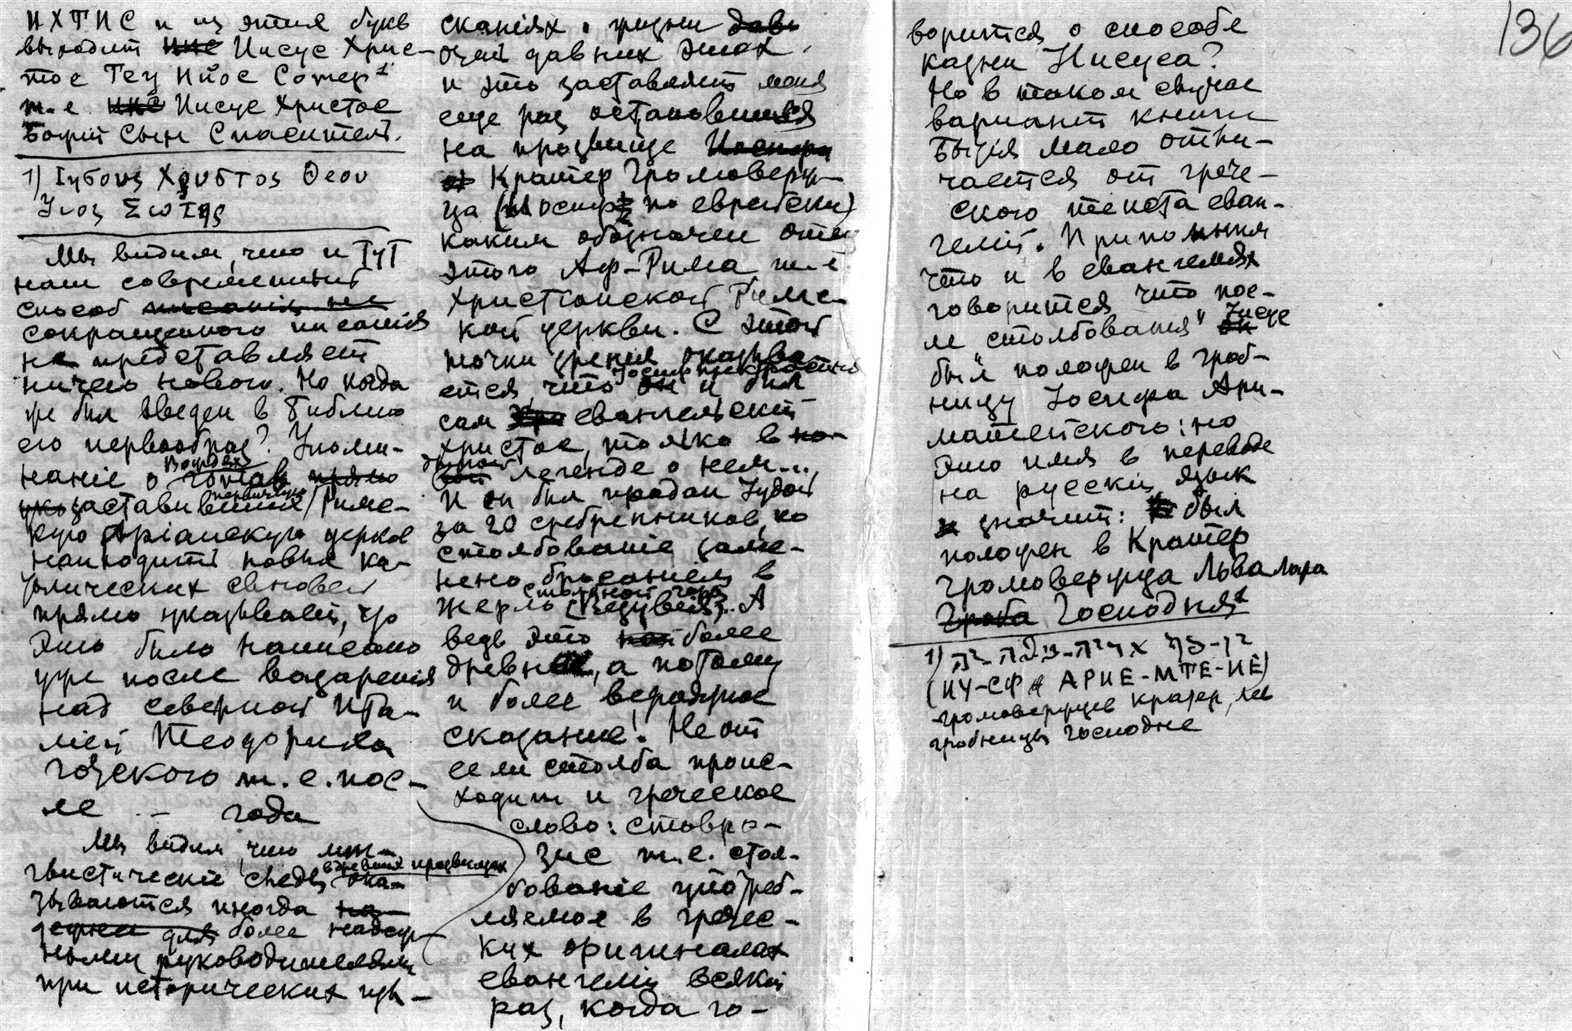 ИХТИС и из этих букв
выходит Иисус Хрис-
тос Теу Ийос Сотер 1
т.е. Иисус Христос
Божий Сын Спаситель.
1) Ιησους Χριστος Θεου
Υιος Σωτηρ
Мы видим, что и тут
наш современный
способ
сокращенного писания
не представляет
ничего нового. Но когда
же был введен в Библию
его первообраз? Упоми-
наніе о
заставившіе / Римс-
кую Аріанскую церковь
находить новых ка-
толических
прямо указывает, что
это было написано
уже после воцаренія
над северной Ита-
ліей Теодориха
Готского т.е. пос-
ле -- года
Мы видим, что лин-
гвистическіе следы в древних прозвищах ока-
зываются иногда
более надеж-
ными руководителями
при исторических изы-
сканіях о жизни
очень давних эпох
и это заставляет меня
еще раз остановиться
на прозвище
Кратер Громовер-
ца (Иосиф по еврейски)
каким обозначен отец
этого Аф-Рима т.е
христіанской Римс-
кой церкви. С этой
точки зрения оказыва-
ется что и был
сам евангельский
христос, только в
другой легенде о нем...
И он был продан Іудой
за 20 сребренников, но
столбованіе заме-
нено бросаніем в
жерло столбной горы (Везувія)... А
ведь это более
древнее, а потому
и более вероятное
сказание! Не от
сели столба проис-
ходит и греческое
слово: ставро-
зис т.е. стол-
бованіе употреб-
ляемое в гречес-
ких оригиналах
евангелий всякій
раз, когда го-
136
ворится о способе
казни Иисуса?
Но в таком случае
вариант книги
Бытія мало отли-
чается от грече-
ского текста еван-
гелій. Припомним
что и в евангелиях
говорится что пос-
ле столбования" Іисус
был положен в гроб-
ницу Іосифа Ари-
мафейского: но
это имя в переводе
на русскій язык
значит: был
положен в Кратер
громовержца Льва Лара
Господня 1
1)
(ИУ-СФ АРИЕ-МТЕ-ИЕ)
громовержцев кратер, лев
гробницы Господне